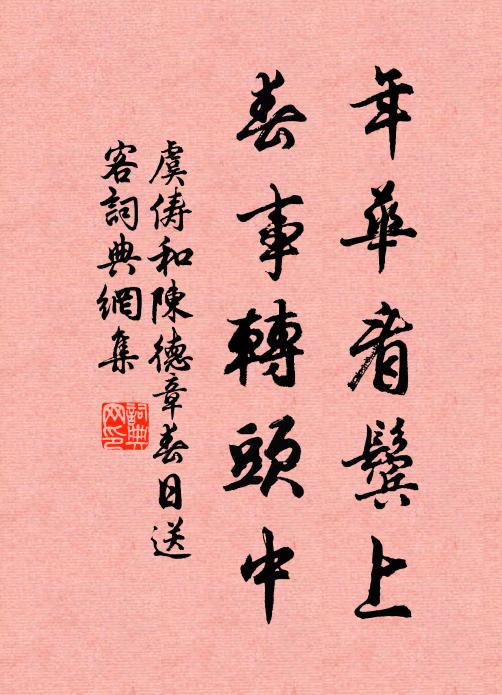 年華看鬢上
春事轉頭中
虞儔和陳德章春日送
客詞典網集
詞典网印